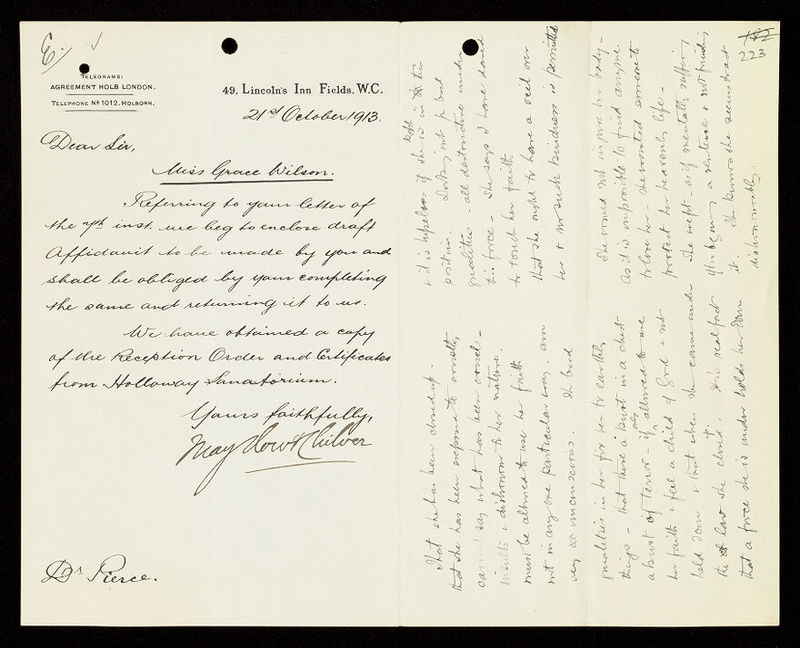 E/
TELEGRAMS:
AGREEMENT HOLB LONDON.
TELEPHONE Nº 1012, HOLBORN.
49, Lincoln's Inn Fields, W.C.
21st October 1913.
Dear Sir,
Miss Grace Wilson.
Referring to your letter of
the 7th inst. we beg to enclose draft
Affidavit to be made by you and
shall be obliged by your completing
the same and returning it to us.
We have obtained a copy
of the Reception Order and Certificates
from Holloway Sanatorium.
Yours faithfully,
May How & Chilver
Dr Pierce.
223
That she has been closed up.
that she has been exposed to cruelty
cannot say what has been cruel -
insults & dishonour to her nature.
must be allowed to use her faith
not in any one particular way, am
very unconscious.
qualities in her for her to earthly
things - that there is a burst in a chest
a burst of - if only allowed to use
her faith & feel a child of God & not
held down & that when she came under
the law she The real fact
that a force she is under holds her down
& it is hopeless if she is kept in this
position. Looking not
qualities - all destructive under
this force - She says I have dared
to touch her faith
that she ought to have a veil over
her & no such kindness is permitted
She would not injure her body -
As it is impossible to find anyone
to love her - she wanted someone to
protect her heavenly life -
She wept - as if mentally suffering
a sentence & not finding
it. She knows she seems to act
dishonorably.